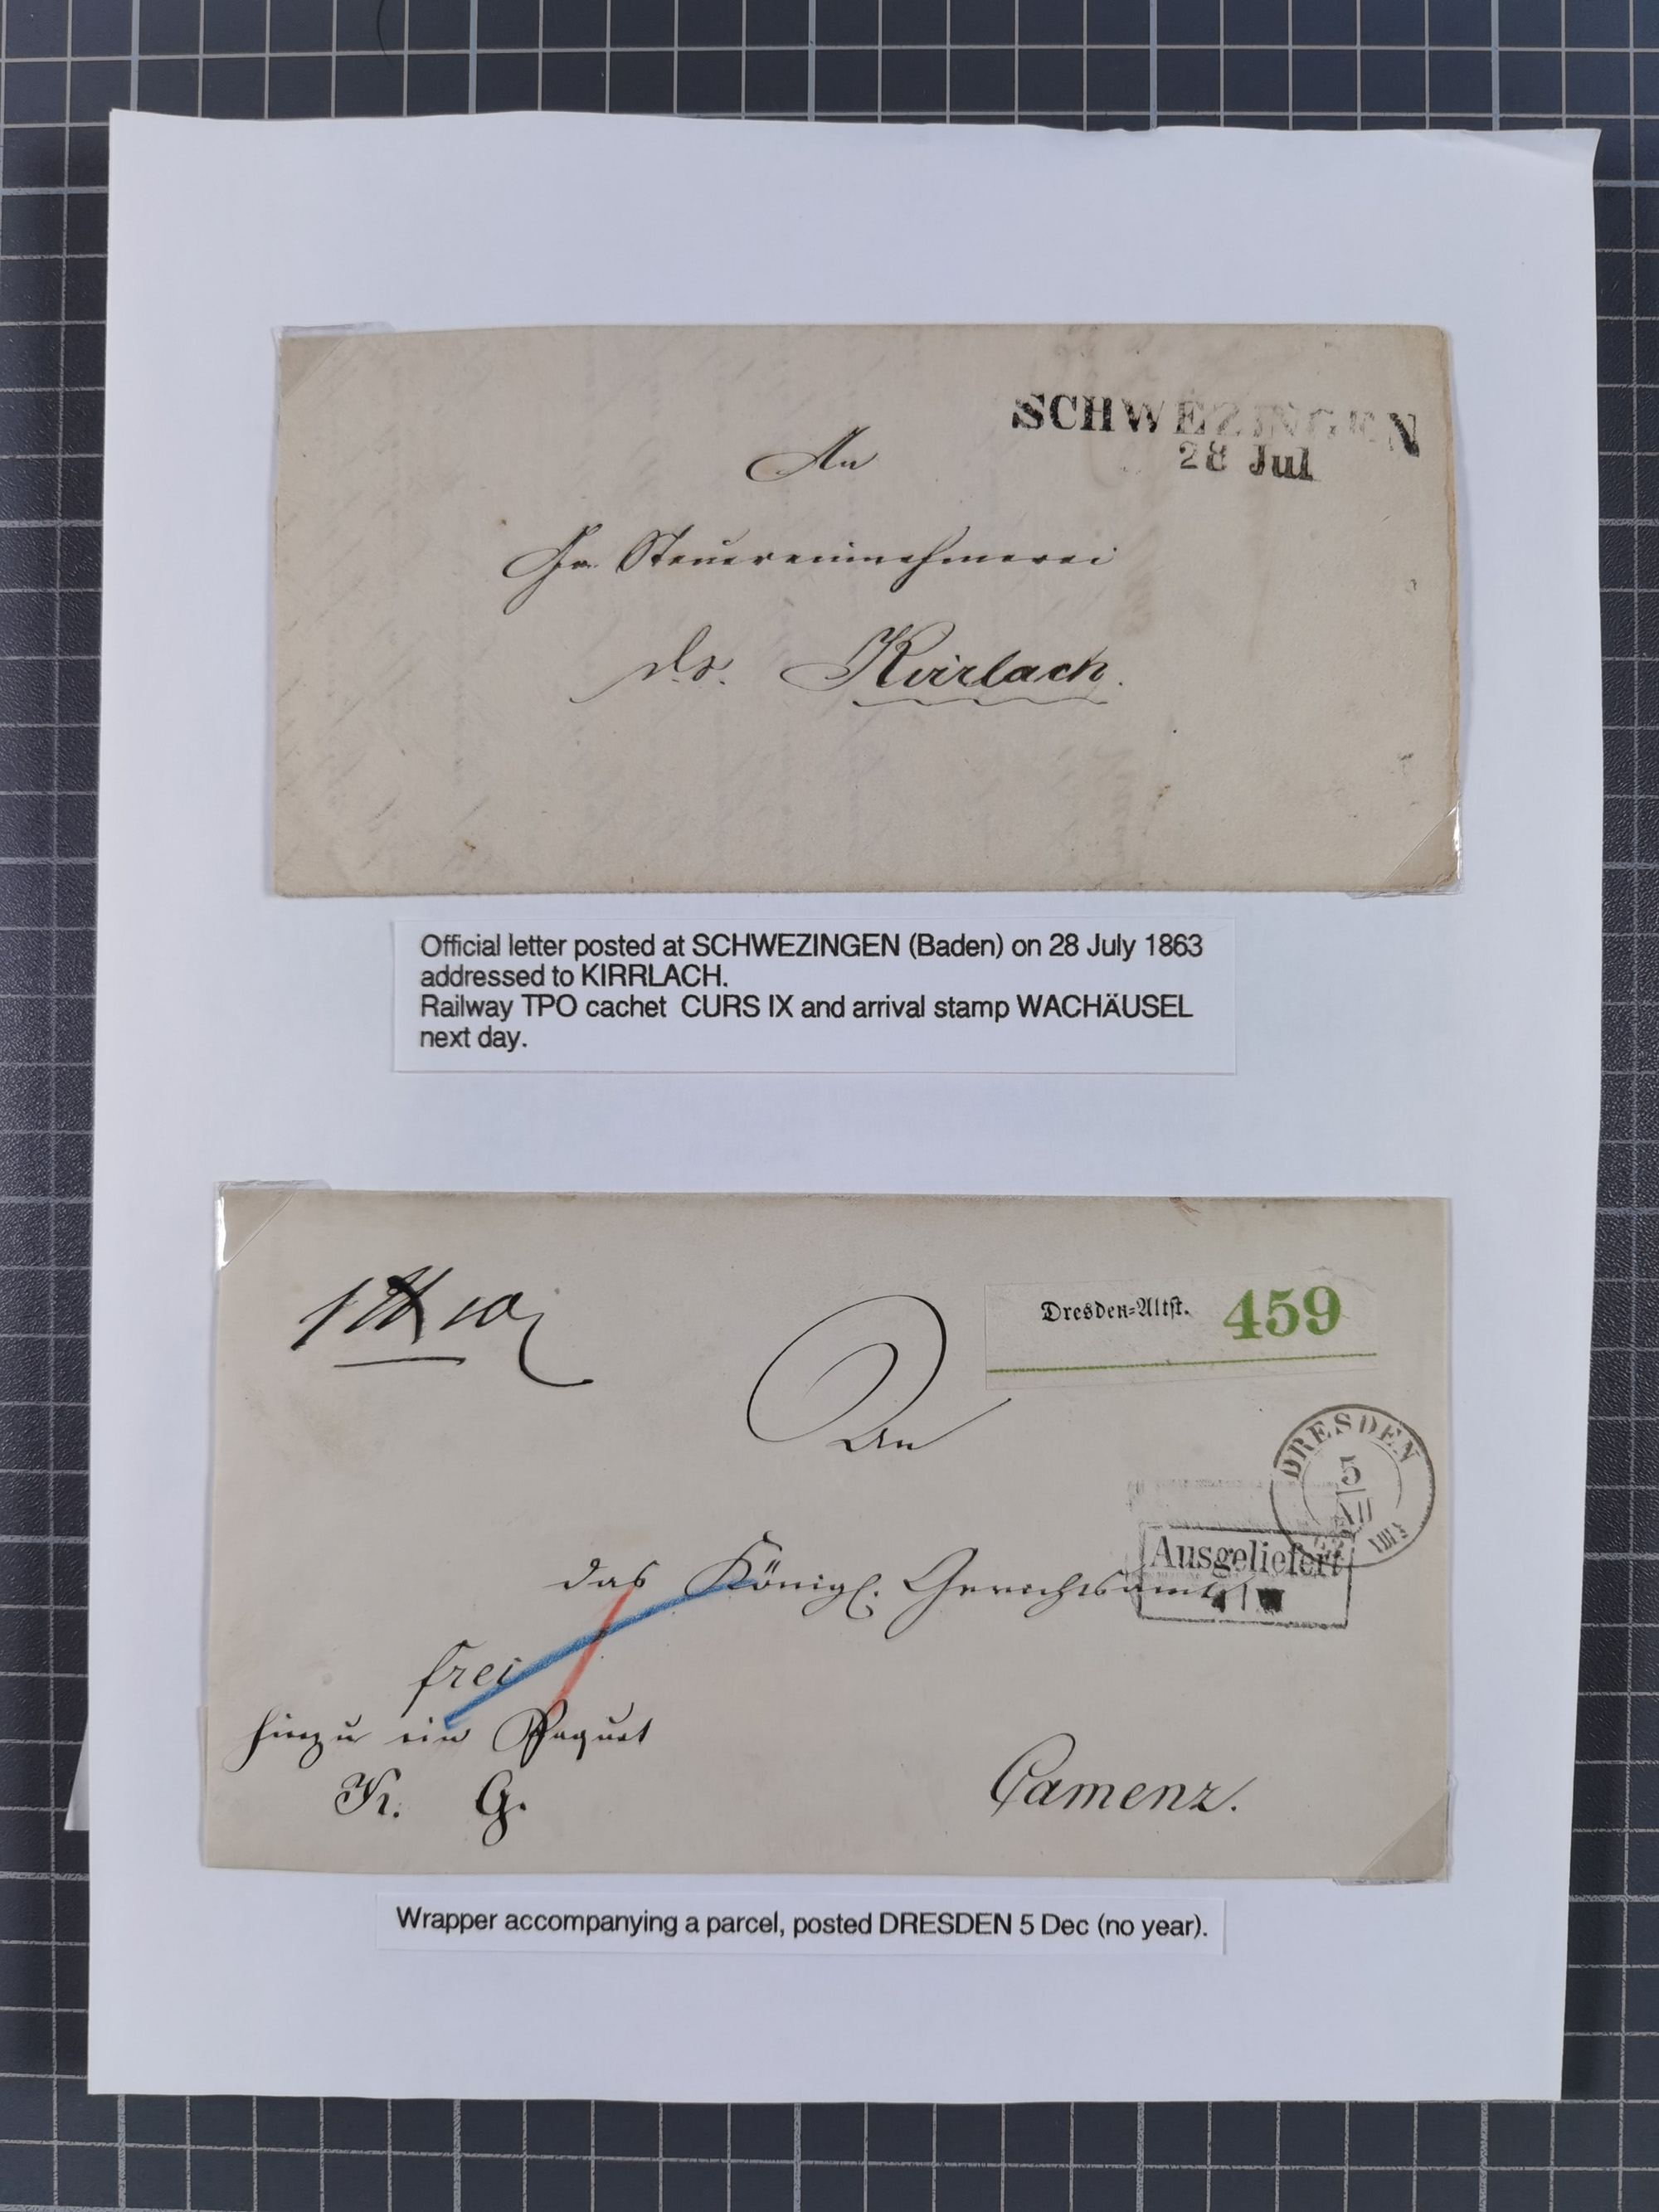 SCHWEZINGEN
28 Jul
An
Gr. Steuereinnehmerei
Kirrlach.
Official letter posted at SCHWEZINGEN (Baden) on 28 July 1863
addressed to KIRRLACH.
Railway TPO cachet CURS IX and arrival stamp WACHÄUSEL
next day.
Dresden-Altst. 459
An
DRESDEN
5
XII
Ausgeliefert
das Königl. Gerichtsamt
frei
hinzu ein Paquet
K. G.
Camenz.
Wrapper accompanying a parcel, posted DRESDEN 5 Dec (no year).